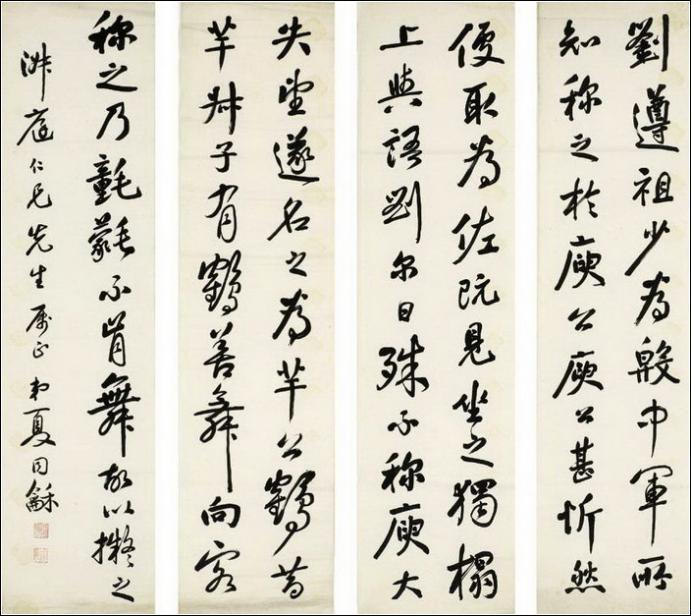 劉遵祖少為殷中軍所
知称之於庾公庾公甚忻然
便取為佐既見坐之獨榻
上與語劉尔日殊不称庾大
失望遂名之為羊公鶴昔
羊叔子有鶴善舞向客
称之乃氃氋不肯舞故以擬之
淑庭仁兄先生属正 弟夏同龢